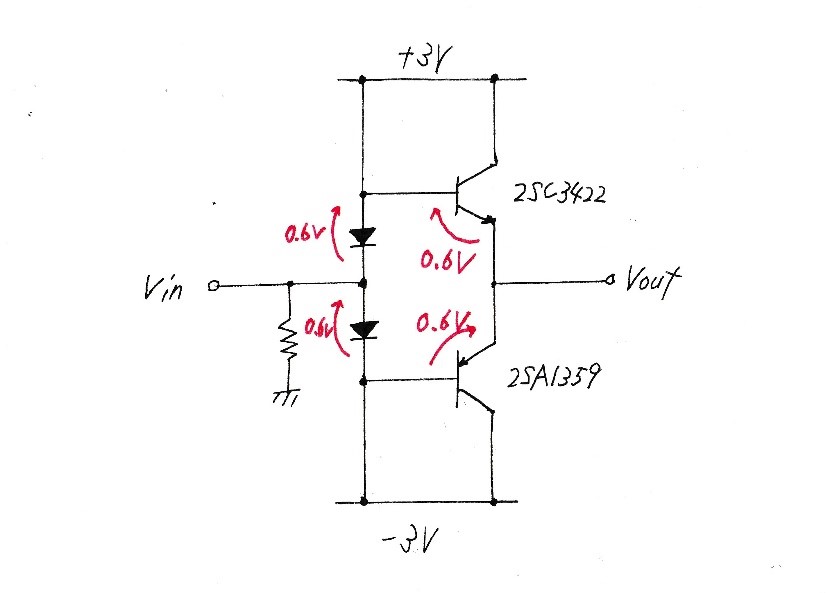 +3V
2SC3422
0.6V
0.6V
Vin
Vout
0.6V
0.6V
2SA1359
-3V